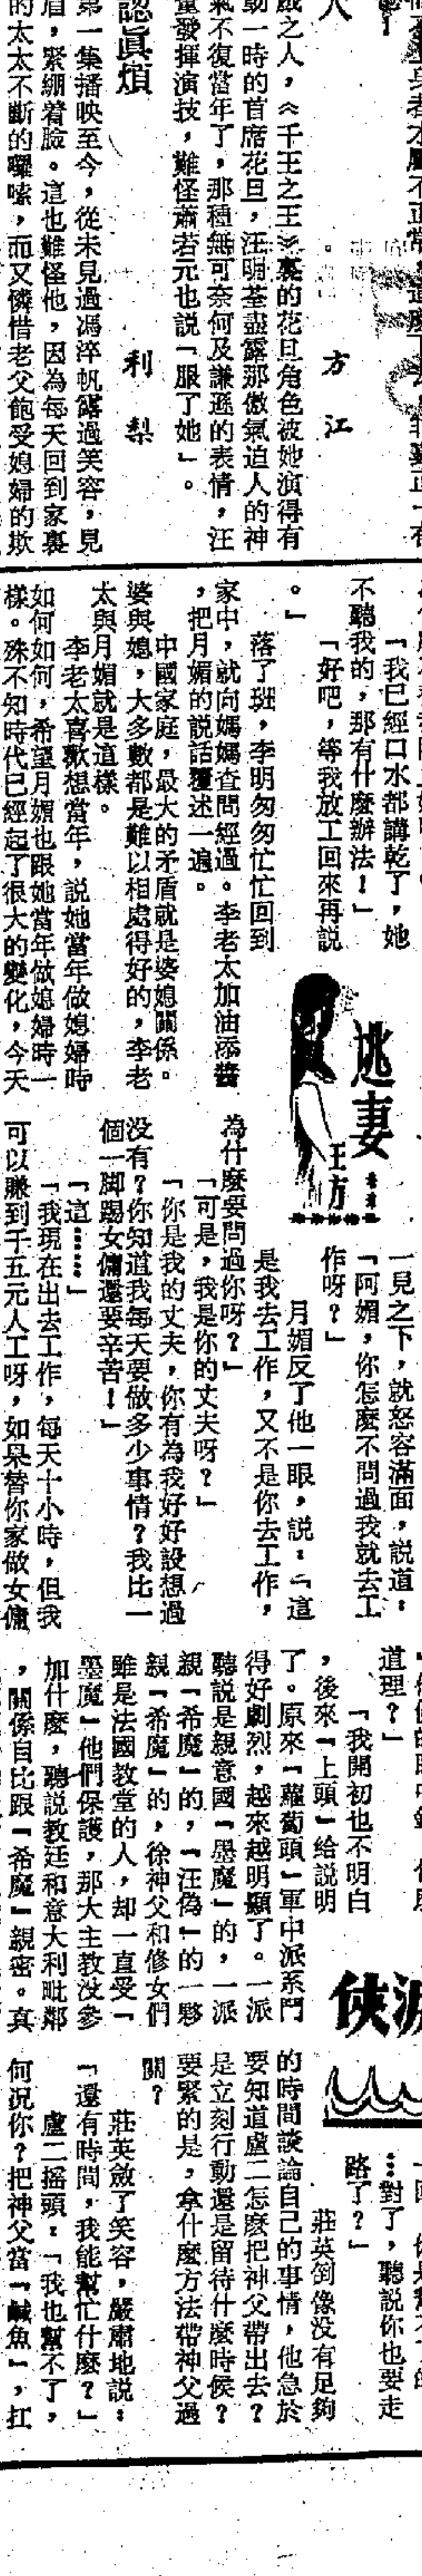 人
方江
戲之人，《千王之王》裏的花旦角色被她演得有
動一時的首席花旦，汪明荃盡露那傲氣迫人的神
氣不復當年了，那種無可奈何及謙遜的表情，汪
量發揮演技，難怪蕭若元也說「服了她」。
認眞煩
利梨
第一集播映至今，從未見過馮淬帆露過笑容，見
眉，緊綳着臉。這也難怪他，因為每天回到家裏
的太太不斷的囉嗦，而又憐惜老父飽受媳婦的欺
「我已經口水都講乾了，她
不聽我的，那有什麼辦法！」
「好吧，等我放工回來再說
。」
落了班，李明匆匆忙忙回到
家中，就向媽媽查問經過。李老太加油添醬
，把月媚的說話覆述一遍。
中國家庭，最大的矛盾就是婆媳關係。
婆與媳，大多數都是難以相處得好的，李老
太與月媚就是這樣。
李老太喜歡想當年，說她當年做媳婦時
如何如何，希望月媚也跟她當年做媳婦時一
樣。殊不知時代已經起了很大的變化，今天
逃妻
王方
一見之下，就怒容滿面，說道：
「阿媚，你怎麼不問過我就去工
作呀？」
月媚反了他一眼，說：「這
是我去工作，又不是你去工作，
為什麼要問過你呀？」
「可是，我是你的丈夫呀？」
「你是我的丈夫，你有為我好好設想過
没有？你知道我每天要做多少事情？我比一
個一脚踢女傭還要辛苦！」
「這……」
「我現在出去工作，每天十小時，但我
可以賺到千五元人工呀，如果替你家做女傭
道理？」
「我開初也不明白
，後來「上頭」給說明
了。原來「蘿蔔頭」軍中派系鬥
得好劇烈，越來越明顯了。一派
聽說是親意國「墨魔」的，一派
親「希魔」的，「汪偽」的一夥
親「希魔」的，徐神父和修女們
雖是法國教堂的人，却一直受「
墨魔」他們保護，那大主教没參
加什麼，聽說教廷和意大利毗鄰
，關係自比跟「希魔」親密。真
俠
…對了，聽說你也要走
路了？」
莊英釗像没有足夠
的時間談論自己的事情，他急於
要知道盧二怎麼把神父帶出去？
是立刻行動還是留待什麼時侯？
要紧的是，拿什麼方法帶神父過
關？
莊英斂了笑容，嚴肅地說：
「還有時間，我能幫忙什麼？」
盧二摇頭：「我也幫不了，
何況你？把神父當「鹹魚」，扛